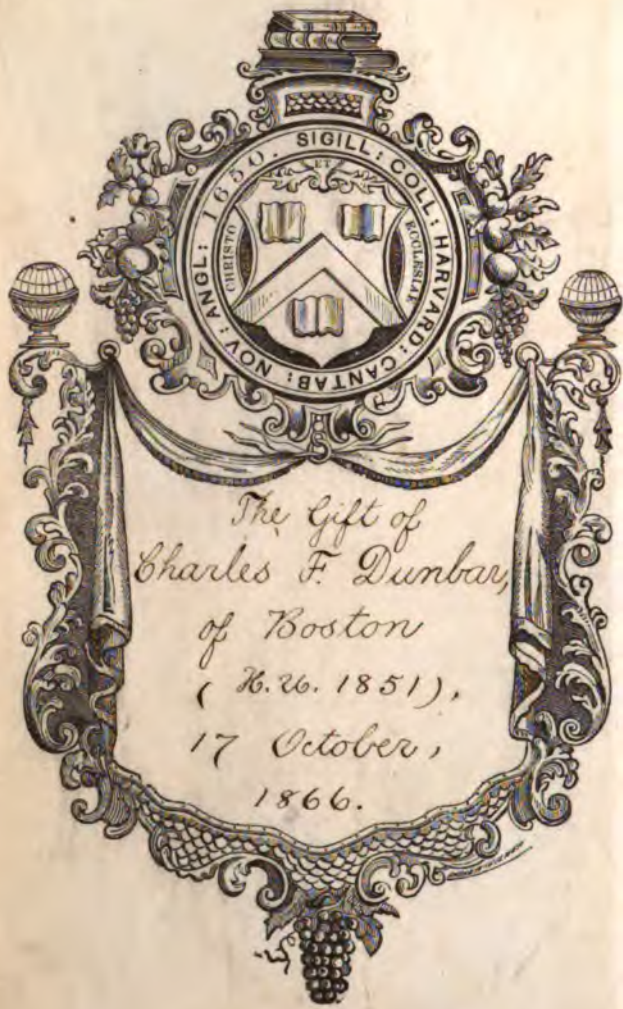 SIGILL: COLL: HARVARD: CANTAB: NOV: ANGL: 1650.
ET
CHRISTO
ECCLESIAE
The Gift of
Charles F. Dunbar,
of Boston
( H.U. 1851),
17 October,
1866.